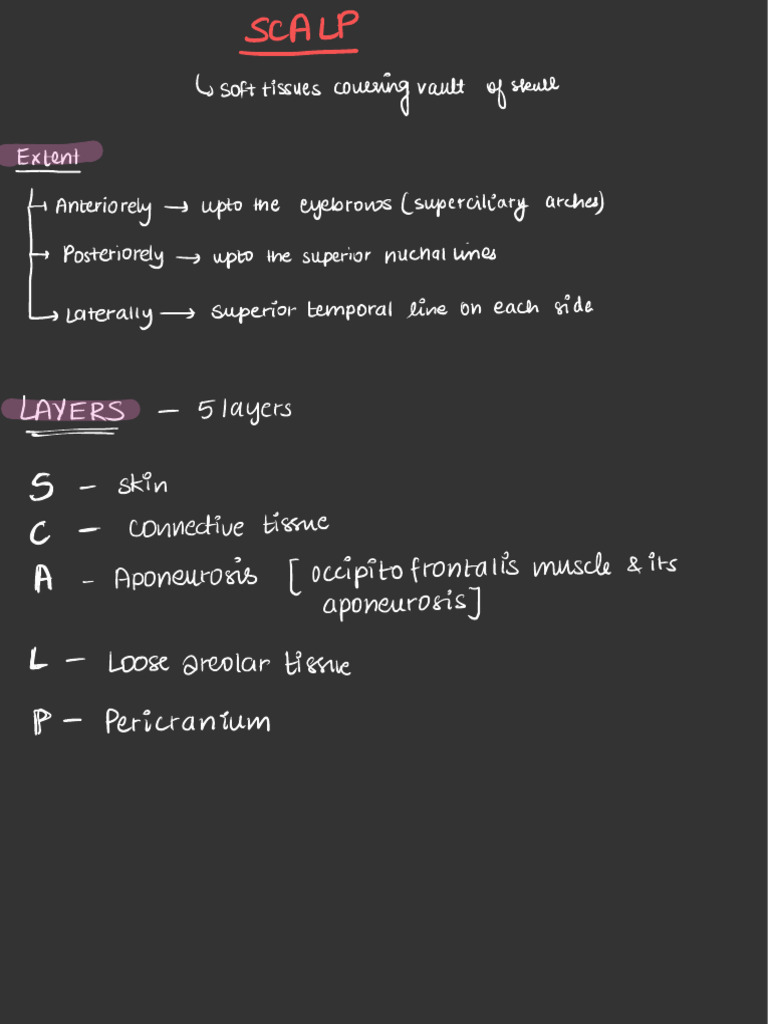 SCALP
↳ soft tissues covering vault of skull
Extent
→ Anteriorely → upto the eyebrows (superciliary arches)
→ Posteriorely → upto the superior nuchal lines
→ Laterally → superior temporal line on each side
LAYERS - 5 layers
S - skin
C - connective tissue
A - Aponeurosis [occipitofrontalis muscle & its
aponeurosis]
L - Loose areolar tissue
P - Pericranium